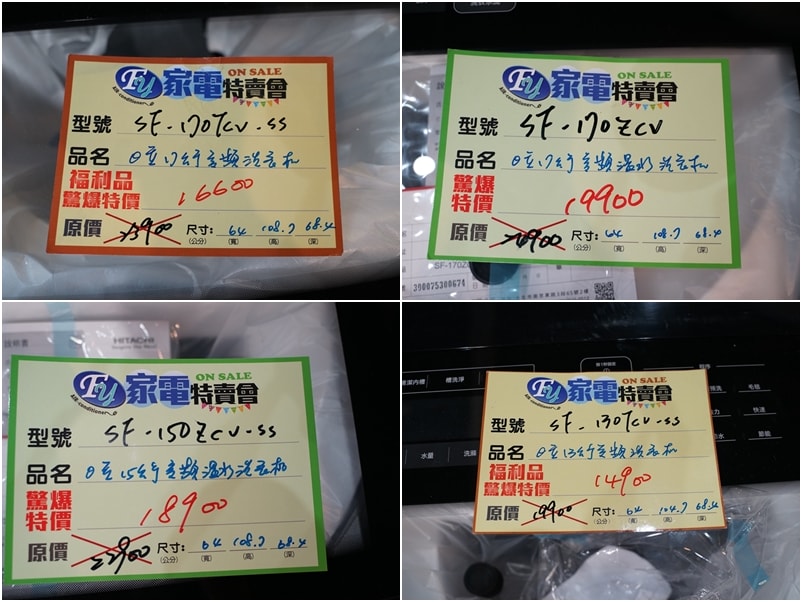 Fu 家電特賣會 ON SALE
Air-conditioner
型號 SF-170TCV-SS
品名 日立17公斤變頻洗衣機
福利品
驚爆特價 16600
原價 23900 尺寸: 64 108.7 68.4
(公分) (寬) (高) (深)
Fu 家電特賣會 ON SALE
Air-conditioner
型號 SF-170ZCV
品名 日立17公斤變頻溫水洗衣機
驚爆
特價 19900
原價 26900 尺寸: 64 108.7 68.4
(公分) (寬) (高) (深)
SF-170Z
390075300674
說明書
HITACHI
Fu 家電特賣會 ON SALE
Air-conditioner
型號 SF-150ZCV-SS
品名 日立15公斤變頻溫水洗衣機
驚爆
特價 18900
原價 22900 尺寸: 64 108.7 68.4
(公分) (寬) (高) (深)
槽洗淨
Fu 家電特賣會 ON SALE
Air-conditioner
型號 SF-130TCV-SS
品名 日立13公斤變頻洗衣機
福利品
驚爆特價 14900
原價 19900 尺寸: 64 104.7 68.4
(公分) (寬) (高) (深)
毛毯
快速
節能
水量